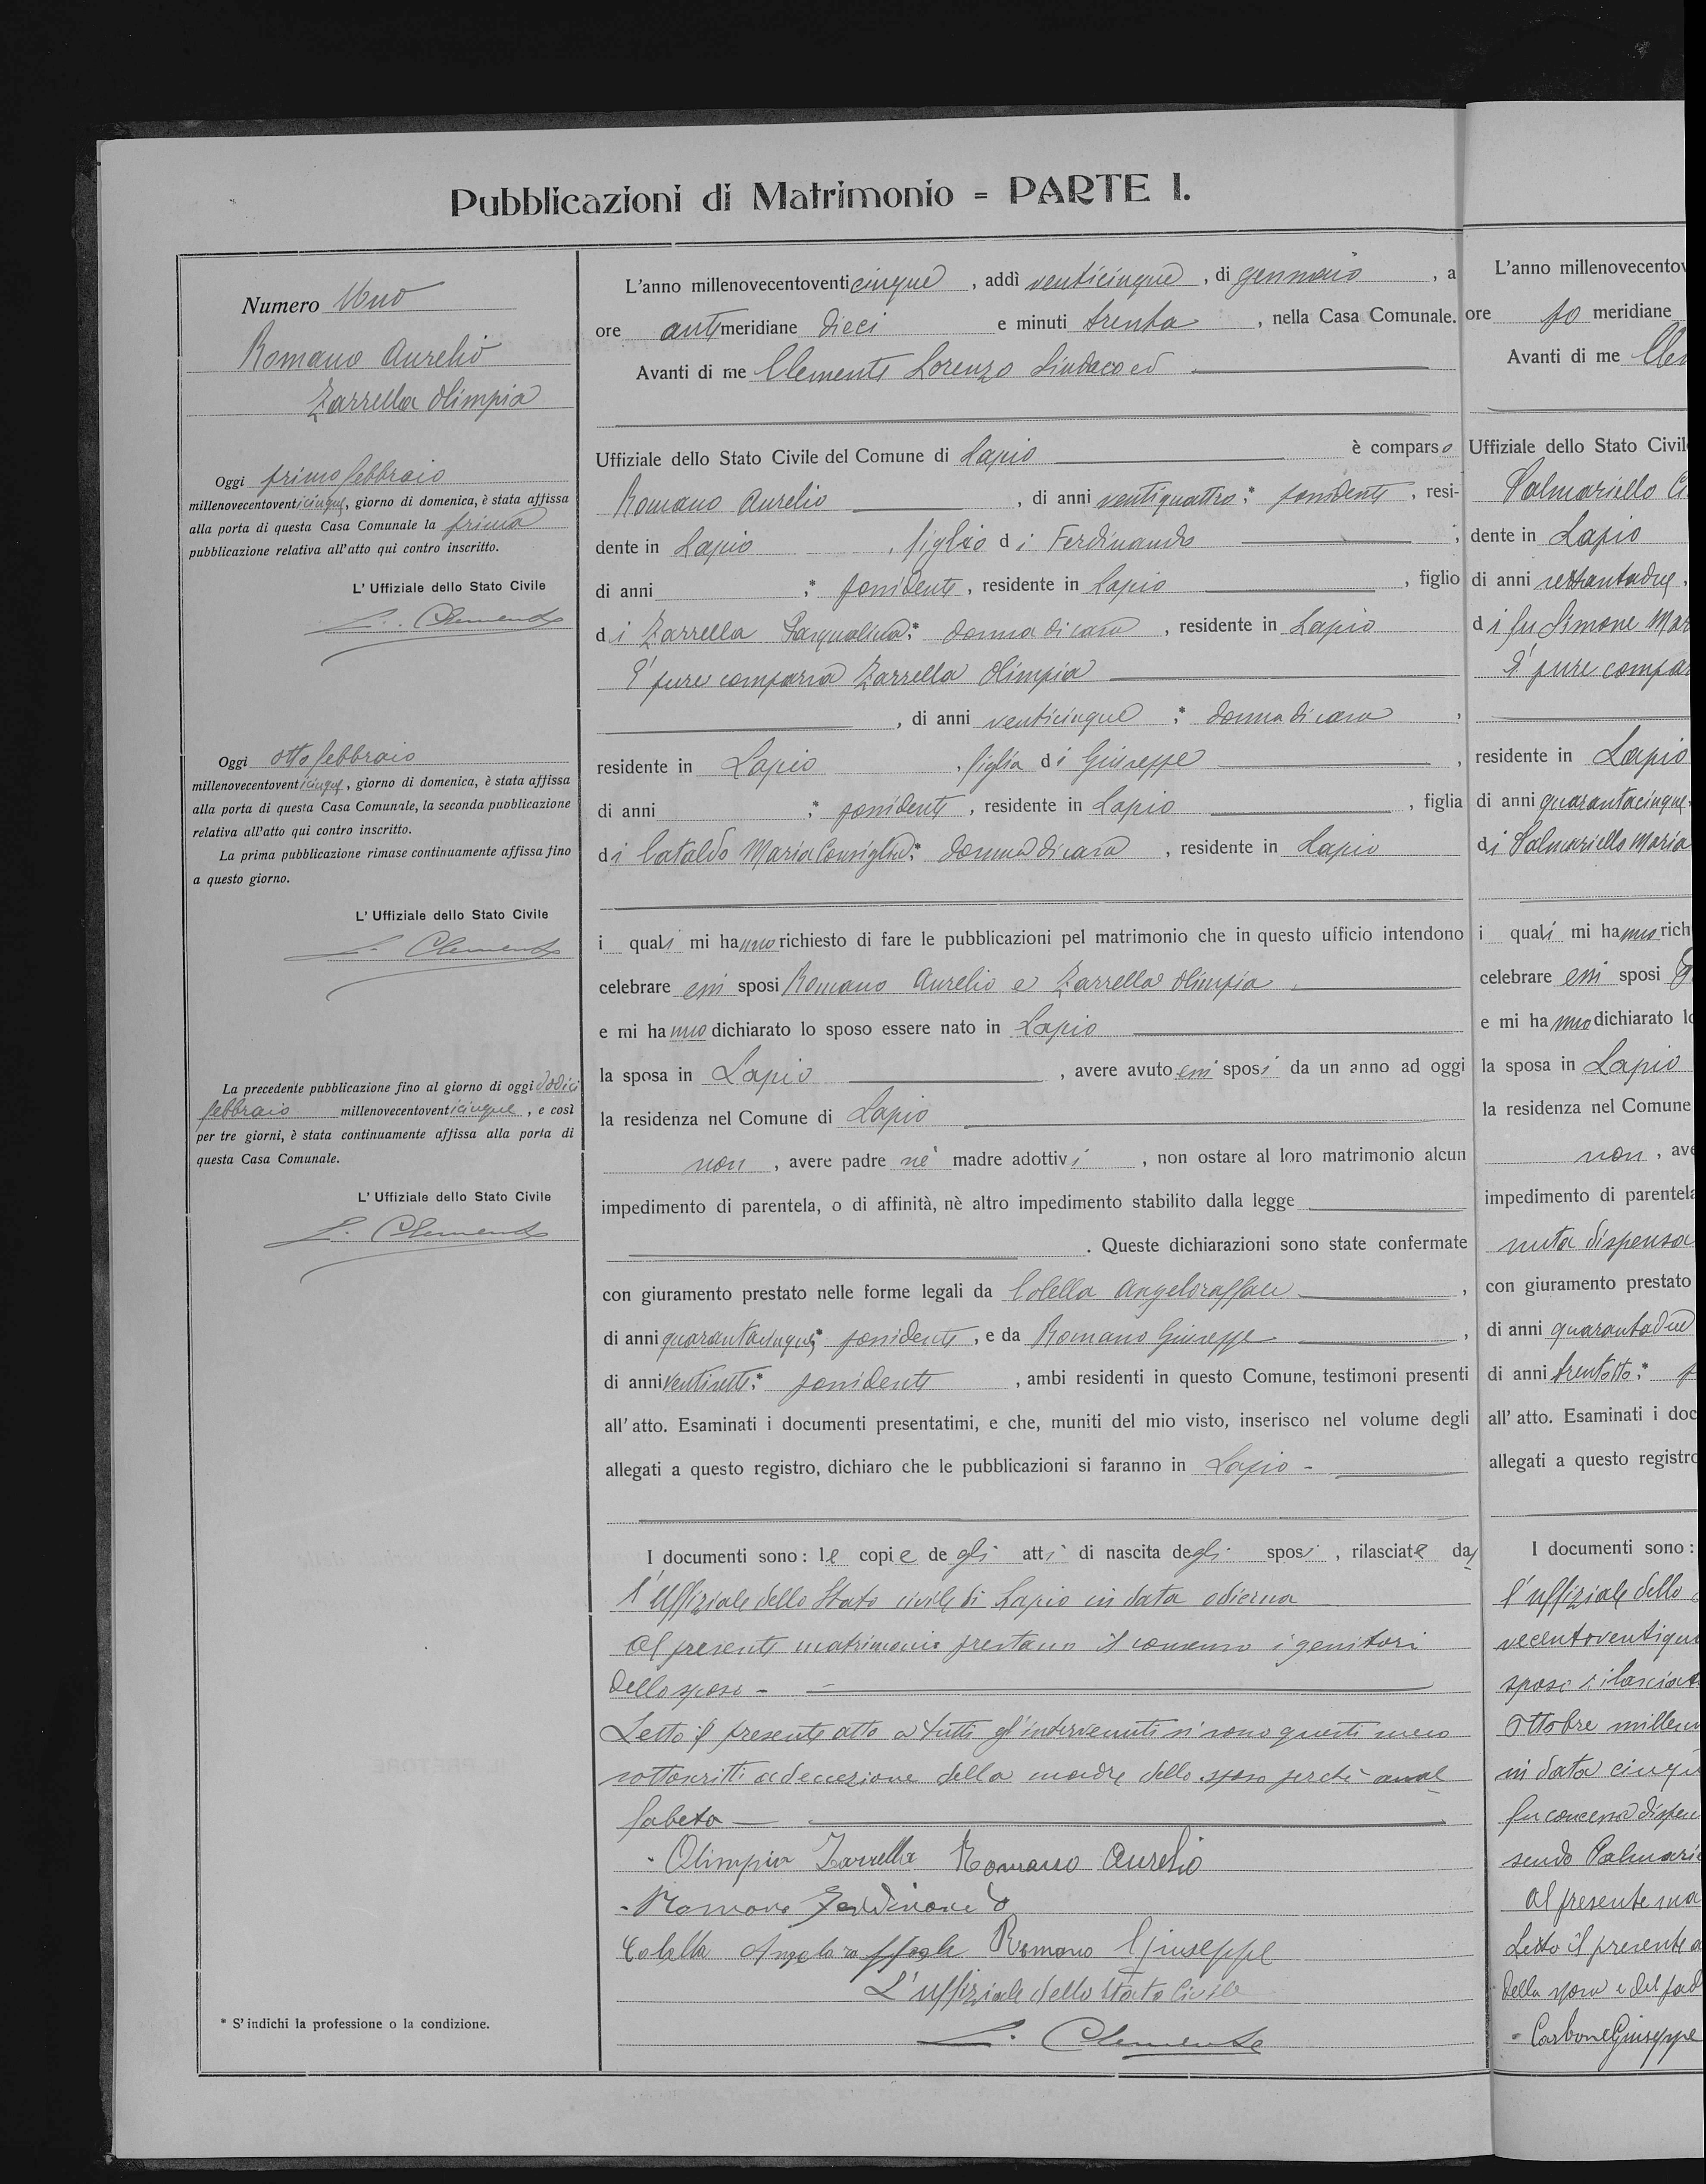 Pubblicazioni di Matrimonio = PARTE I.
Numero Uno
Romano Aurelio
Zarrella Olimpia
Oggi primo febbraio
millenovecentoventicinque, giorno di domenica, è stata affissa
alla porta di questa Casa Comunale la prima
pubblicazione relativa all'atto qui contro inscritto.
L' Uffiziale dello Stato Civile
L. Clemente
Oggi otto febbraio
millenovecentoventicinque, giorno di domenica, è stata affissa
alla porta di questa Casa Comunale, la seconda pubblicazione
relativa all'atto qui contro inscritto.
La prima pubblicazione rimase continuamente affissa fino
a questo giorno.
L' Uffiziale dello Stato Civile
L. Clemente
La precedente pubblicazione fino al giorno di oggi dodici
febbraio millenovecentoventicinque, e così
per tre giorni, è stata continuamente affissa alla porta di
questa Casa Comunale.
L' Uffiziale dello Stato Civile
L. Clemente
* S'indichi la professione o la condizione.
L'anno millenovecentoventicinque, addì venticinque, di gennaio, a
ore antimeridiane dieci e minuti trenta, nella Casa Comunale.
Avanti di me Clemente Lorenzo Sindaco ed
Uffiziale dello Stato Civile del Comune di Lapio è comparso
Romano Aurelio, di anni ventiquattro:* possidente, resi-
dente in Lapio, figlio di Ferdinando,
di anni :* possidente, residente in Lapio, figlio
di Zarrella Pasqualina:* donna di casa, residente in Lapio
E' pure comparsa Zarrella Olimpia
, di anni venticinque :* donna di casa,
residente in Lapio, figlia di Giuseppe,
di anni :* possidente, residente in Lapio, figlia
di Cataldo Maria Consiglia:* donna di casa, residente in Lapio
i quali mi hanno richiesto di fare le pubblicazioni pel matrimonio che in questo ufficio intendono
celebrare essi sposi Romano Aurelio e Zarrella Olimpia
e mi hanno dichiarato lo sposo essere nato in Lapio
la sposa in Lapio, avere avuto essi sposi da un anno ad oggi
la residenza nel Comune di Lapio
non, avere padre nè madre adottivi, non ostare al loro matrimonio alcun
impedimento di parentela, o di affinità, nè altro impedimento stabilito dalla legge
. Queste dichiarazioni sono state confermate
con giuramento prestato nelle forme legali da Colella Angeloraffaele,
di anni quarantacinque:* possidente, e da Romano Giuseppe,
di anni ventisette:* possidente, ambi residenti in questo Comune, testimoni presenti
all' atto. Esaminati i documenti presentatimi, e che, muniti del mio visto, inserisco nel volume degli
allegati a questo registro, dichiaro che le pubblicazioni si faranno in Lapio -
I documenti sono: le copie degli atti di nascita degli sposi, rilasciate dal
l'Uffiziale dello Stato civile di Lapio in data odierna
Al presente matrimonio prestano il consenso i genitori
dello sposo -
Letto il presente atto a tutti gl'intervenuti si sono questi meco
sottoscritti ad eccezione della madre dello sposo perchè anal
fabeta
Olimpia Zarrella Romano Aurelio
Romano Ferdinando
Colella Angeloraffaele Romano Giuseppe
L'uffiziale dello Stato Civile
L. Clemente
L'anno millenovecentov
ore po meridiane
Avanti di me Cle
Uffiziale dello Stato Civil
Palmariello
dente in Lapio
di anni settantadue,
di fu Simone Mar
E' pure compar
residente in Lapio
di anni quarantacinque
di Palmariello Maria
i quali mi hanno rich
celebrare essi sposi
e mi hanno dichiarato lo
la sposa in Lapio
la residenza nel Comune
non, ave
impedimento di parentela
nuta dispensa
con giuramento prestato
di anni quarantadue
di anni trentotto:* p
all' atto. Esaminati i doc
allegati a questo registro
I documenti sono:
l'uffiziale dello
vecentoventiqu
sposo rilasciat
Ottobre millen
in data cinqu
fu concessa dispen
sendo Palmari
Al presente ma
Letto il presente a
della sposa e del pad
Carbone Giuseppe